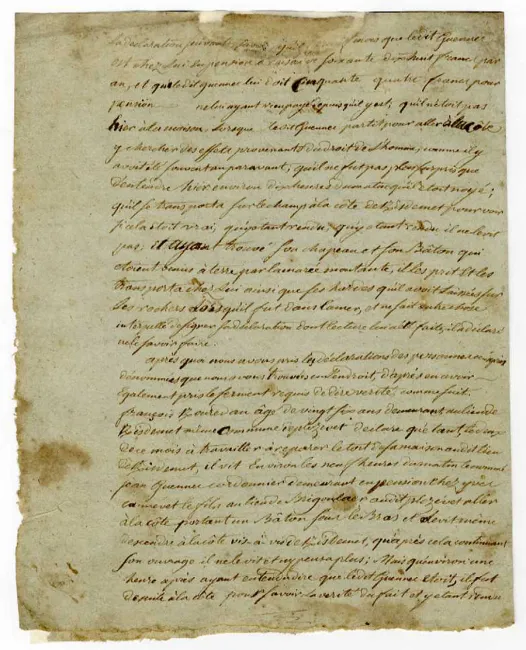 la déclaration suivante, savoir qu'il savoir que ledit Guennec
est chez lui la pension à raison de soixante dixhuit francs par
an, et que ledit guennec lui doit cinquante quatre francs pour
pension ne lui ayant rien payé depuis qu'il y est; qu'il n'était pas
hier à la maison lorsque ledit Guennec partit pour aller à la côte
y chercher des effets provenants du droit de l'homme, comme il y
avoit été souvent auparavant; qu'il ne fut pas plus surpris que
D'entendre hier environ dix heures du matin qu'il étoit noyé;
qu'il se transporta sur le champ à la côte de pour voir
si cela étoit vrai; qu'y étant rendu il ne le vit
pas; il ayant trouvé son chapeau et son Bâton qui
étoient venus à terre par la marée montante, il les prit et les
transporta chez lui ainsi que ses hardes qu'il avoit laissées sur
les rochers lorsqu'il fut dans la mer, et ne fait autre chose
interpellé de signer sa déclaration dont lecture lui a été faite, il a déclaré
ne le savoir faire.
après quoi nous avons pris les déclarations des personnes cy après
dénommés que nous avons trouvés en l'endroit, d'après en avoir
également pris le serment requis de dire vérité, comme suit.
françois âgé de vingt six ans demeurant au lieu de
même commune de plozévet déclare qu'étant le du
de ce mois à travailler à réparer le toit de sa maison audit lieu
de il vit environ les neuf heures du matin le nommé
jean Guennec cordonnier demeurant en pension chez yves
le fils au lieu de Brigoulaer audit plozévet aller
à la côte portant un Bâton sous le Bras et le vit même
descendre à la côte vis à vis de qu'après cela continuant
son ouvrage il ne le vit et n'y pensa plus; Mais qu'environ une
heure après ayant entendu dire que ledit Guennec étoit il fut
de suite à la côte pour savoir la verité du fait et y étant rendu